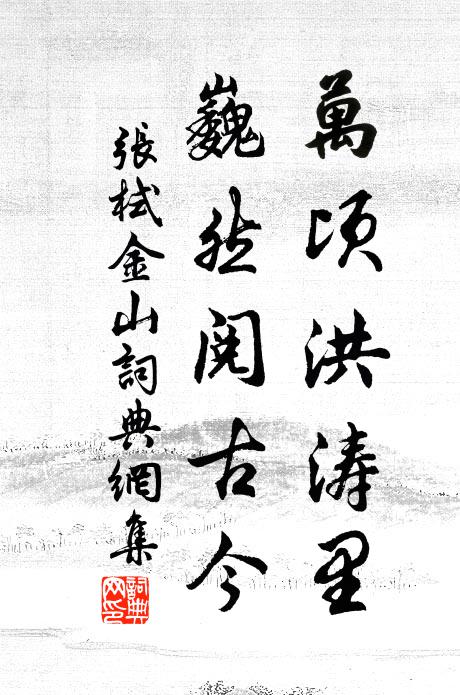 萬頃洪濤里
巍然閱古今
張栻金山詞典網集
詞典網印